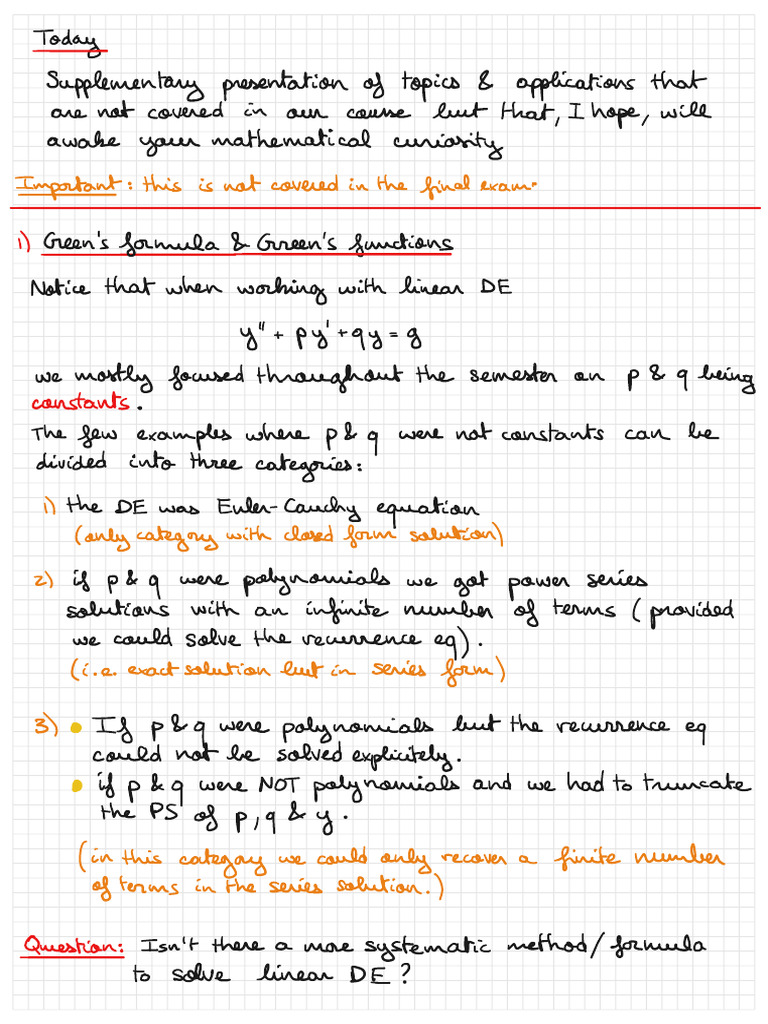 Today
Supplementary presentation of topics & applications that
are not covered in our course but that, I hope, will
awake your mathematical curiosity
Important: this is not covered in the final exam.
1) Green's formula & Green's functions
Notice that when working with linear DE
y'' + py' + qy = g
we mostly focused throughout the semester on p & q being
constants.
The few examples where p & q were not constants can be
divided into three categories:
1) the DE was Euler-Cauchy equation
(only category with closed form solution)
2) if p & q were polynomials we got power series
solutions with an infinite number of terms (provided
we could solve the recurrence eq).
(i.e. exact solution but in series form)
3) • If p & q were polynomials but the recurrence eq
could not be solved explicitely.
• if p & q were NOT polynomials and we had to truncate
the PS of p, q & y.
(in this category we could only recover a finite number
of terms in the series solution.)
Question: Isn't there a more systematic method/formula
to solve linear DE?